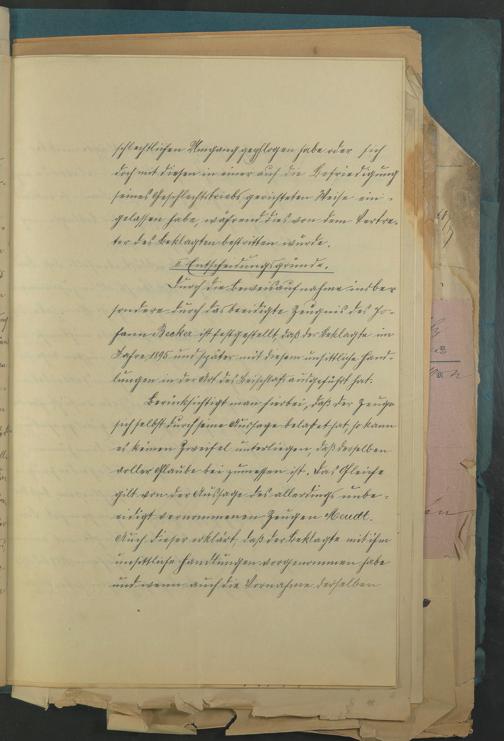 schlechtlichen Umgang gepflogen habe oder sich
doch mit diesen in einer auf die Befriedigung
seines Geschlechtstriebs gerichteten Weise ein-
gelassen habe, während dies von dem Vertre-
ter des Beklagten bestritten wurde.
II Entscheidungsgründe.
Durch die Beweisaufnahme insbe-
sondere durch das beeidigte Zeugnis des Jo-
hann Becker ist festgestellt, daß der Beklagte im
Jahre 1895 und später mit diesem unsittliche Hand-
lungen in der Art des Beischlafs ausgeführt hat.
Berücksichtigt man hierbei, daß der Zeuge
sich selbst durch seine Aussage belastet hat, so kann
es keinen Zweifel unterliegen, daß derselben
voller Glaube beizumessen ist. Das Gleiche
gilt von der Aussage des allerdings unbe-
eidigt vernommenen Zeugen Mandl.
Auch dieser erklärt, daß der Beklagte mit ihm
unsittliche Handlungen vorgenommen habe
und wenn auch die Vornahme derselben